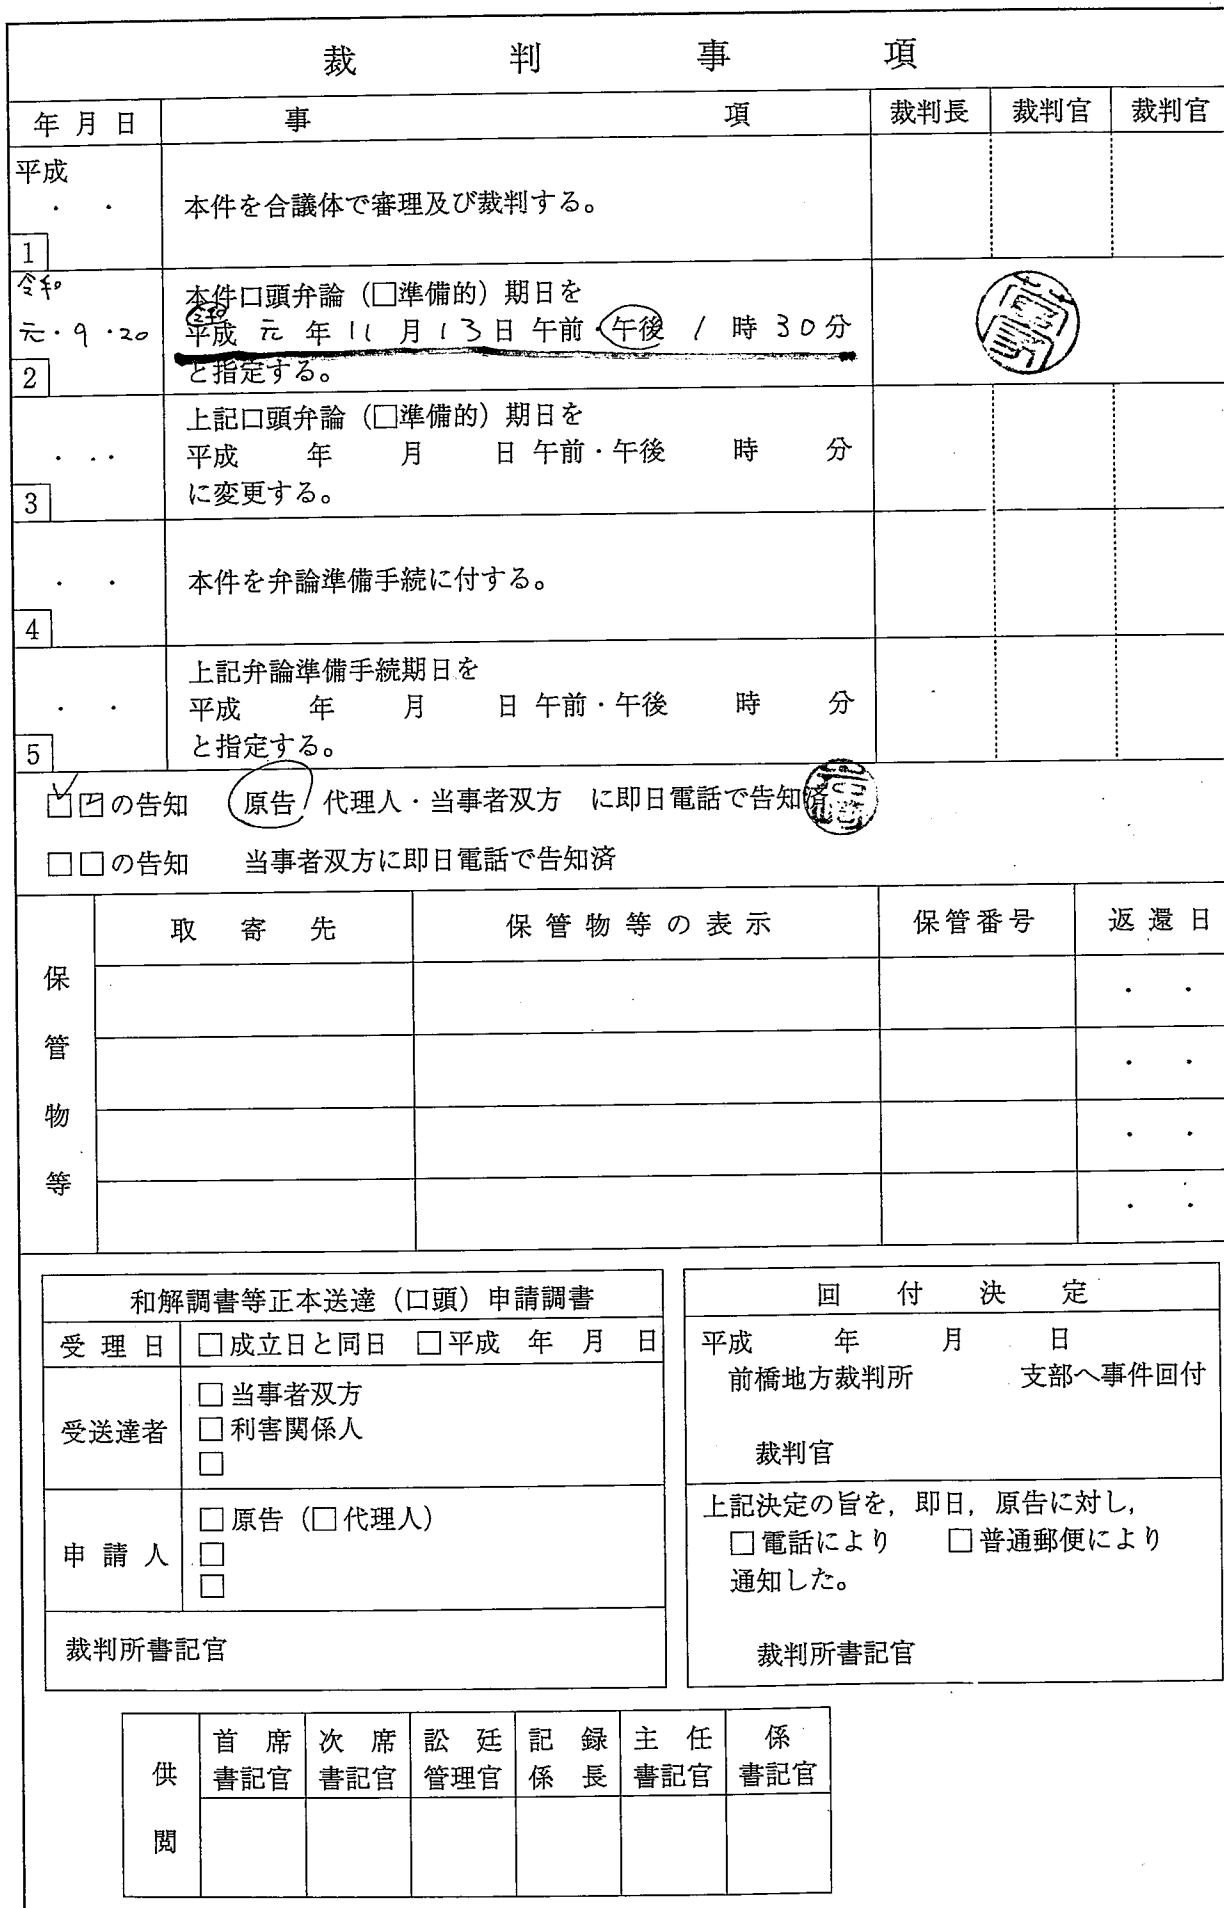 裁判事項
年月日 事項 裁判長 裁判官 裁判官
平成
・ ・ 本件を合議体で審理及び裁判する。
1
令和 本件口頭弁論（□準備的）期日を
令和
元・9・20 平成 元 年 11 月 13 日 午前・午後 1 時 30 分
2 と指定する。
上記口頭弁論（□準備的）期日を
・ ・・ 平成 年 月 日 午前・午後 時 分
3 に変更する。
・ ・ 本件を弁論準備手続に付する。
4
上記弁論準備手続期日を
・ ・ 平成 年 月 日 午前・午後 時 分
5 と指定する。
□□の告知 原告 代理人・当事者双方 に即日電話で告知済
□□の告知 当事者双方に即日電話で告知済
保管物等
取寄先 保管物等の表示 保管番号 返還日
・ ・
・ ・
・ ・
・ ・
和解調書等正本送達（口頭）申請調書
受理日 □成立日と同日 □平成 年 月 日
受送達者
□当事者双方
□利害関係人
□
申請人
□原告（□代理人）
□
□
裁判所書記官
回付決定
平成 年 月 日
前橋地方裁判所 支部へ事件回付
裁判官
上記決定の旨を，即日，原告に対し，
□電話により □普通郵便により
通知した。
裁判所書記官
供閲
首席 次席 訟廷 記録 主任 係
書記官 書記官 管理官 係長 書記官 書記官